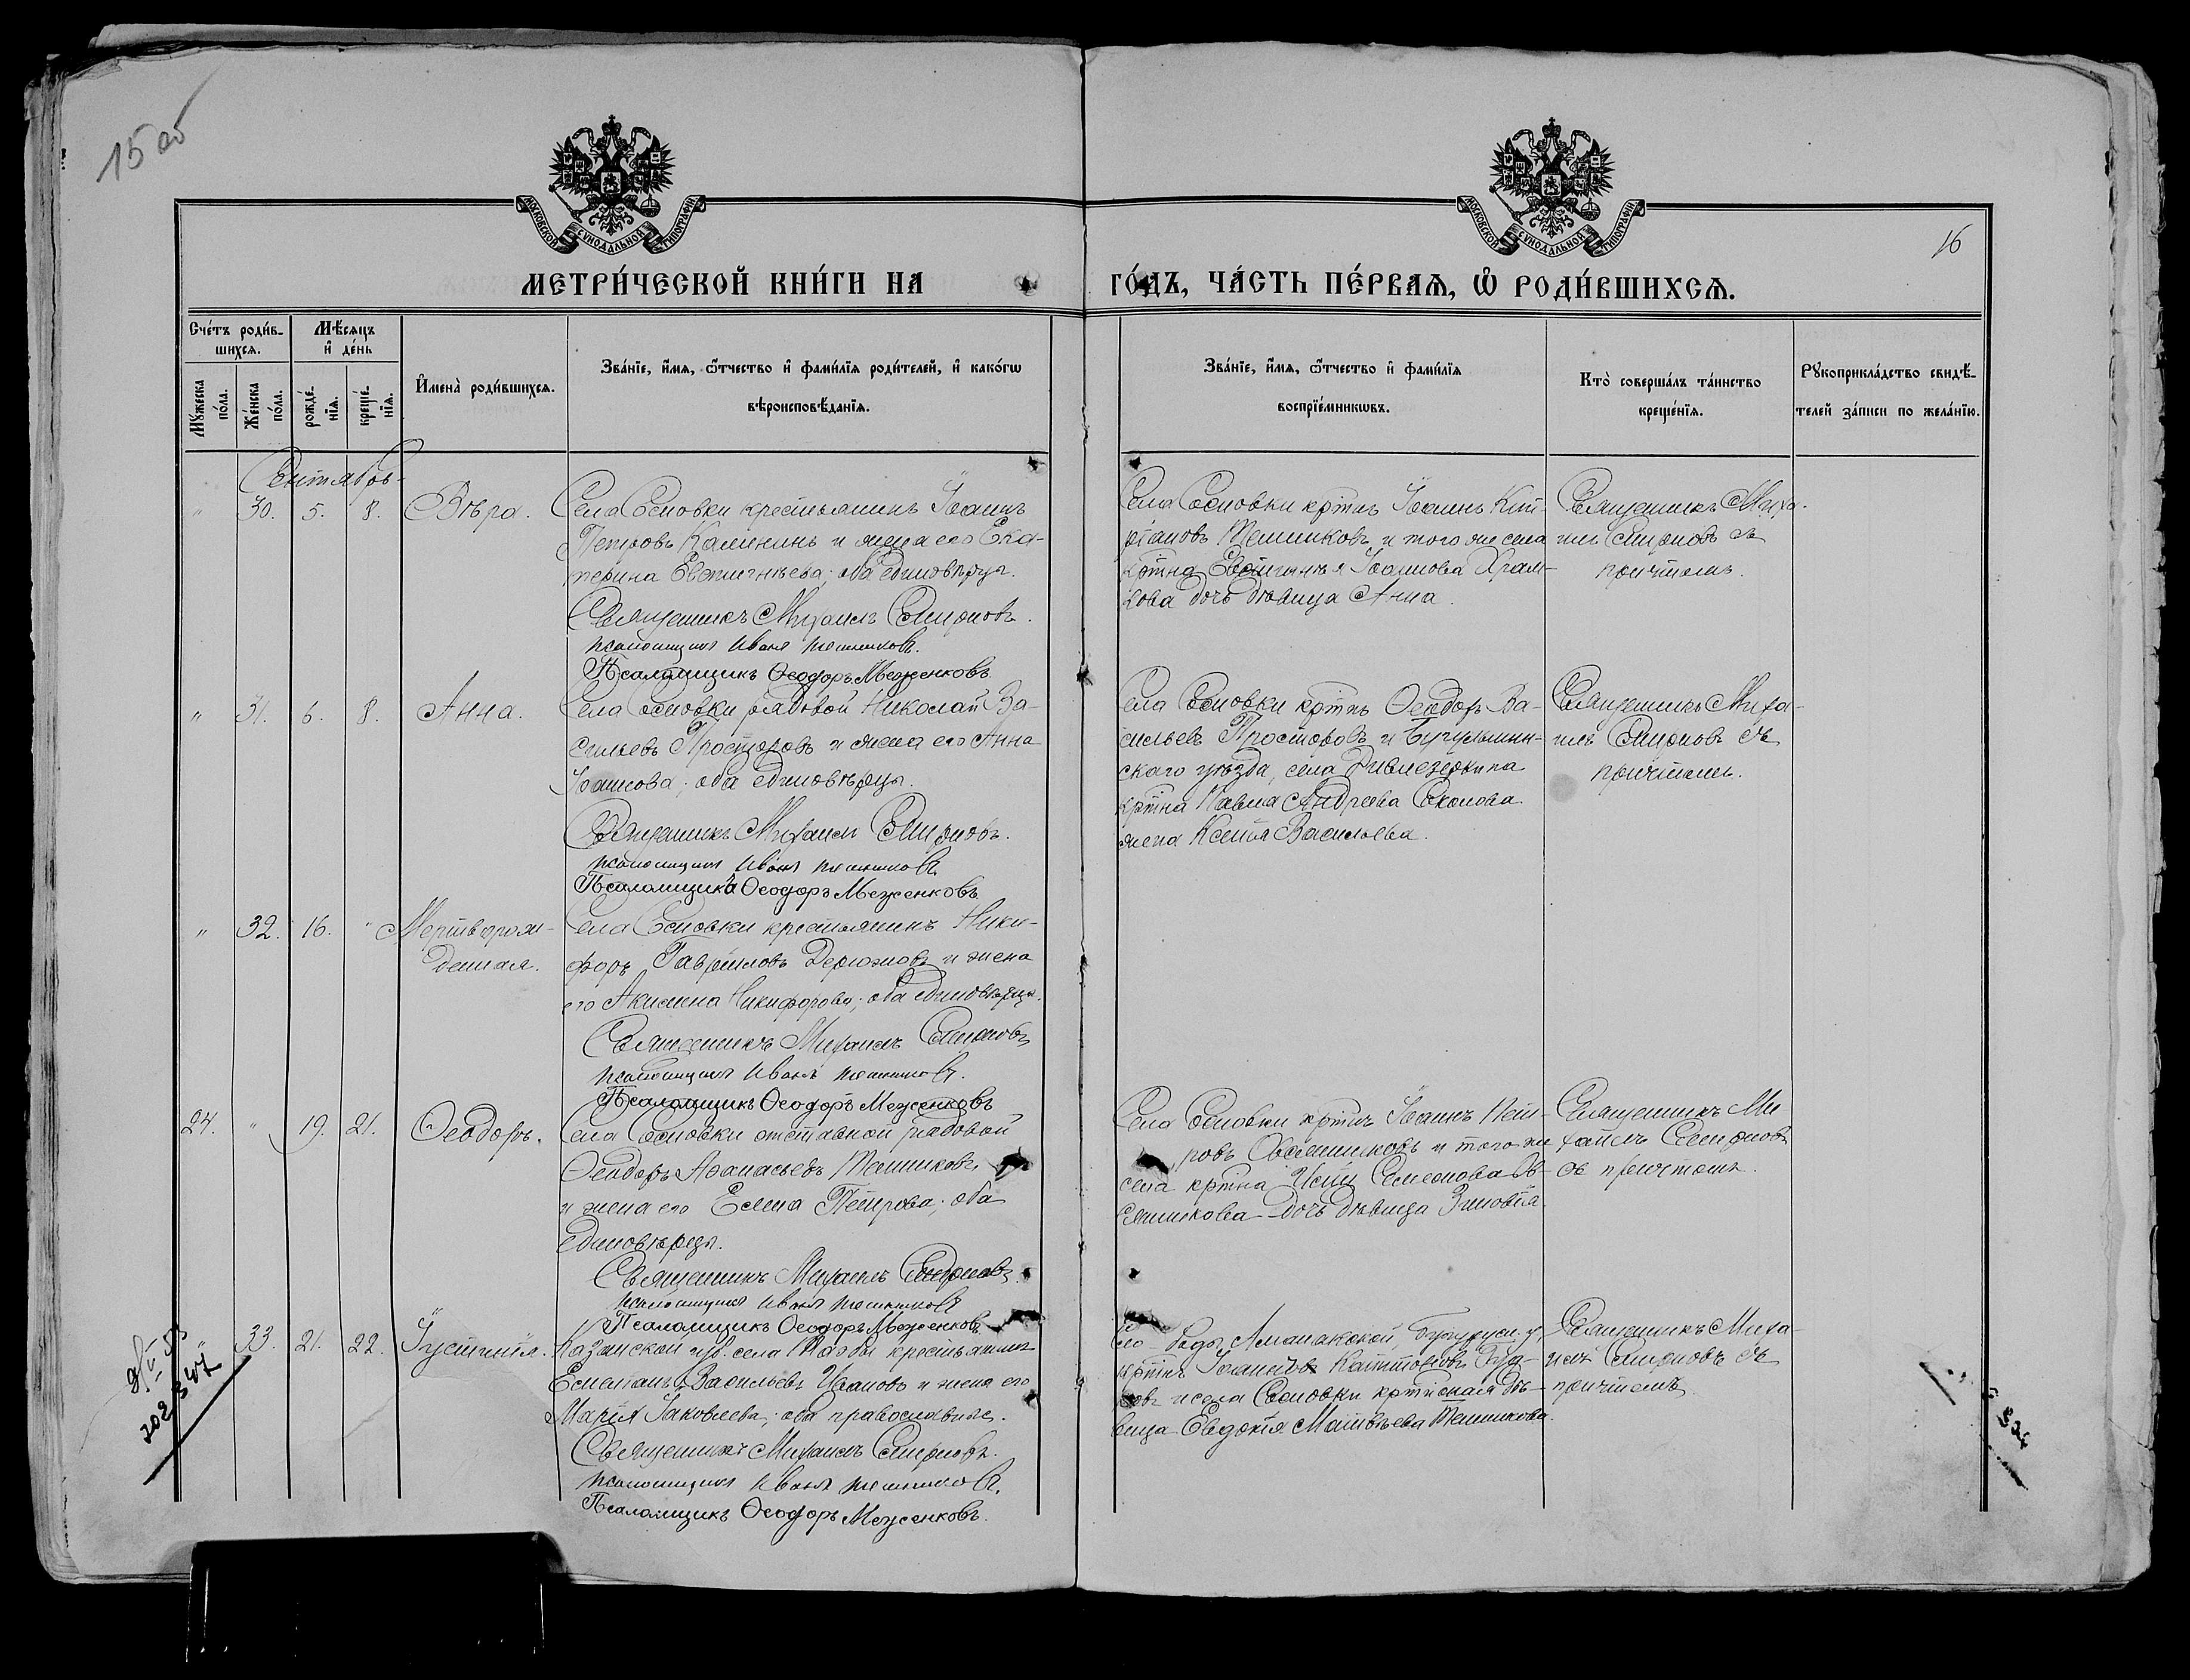 15 об
16
МОСКОВСКОЙ СѴНОДАЛЬНОЙ ТИПОГРАФІИ
МОСКОВСКОЙ СѴНОДАЛЬНОЙ ТИПОГРАФІИ
МЕТРИ́ЧЕСКОЙ КНИ́ГИ НА
ГО́ДЪ, ЧА́СТЬ ПЕ́РВАѦ, Ѡ҆ РОДИ́ВШИХСѦ.
Сче́тъ роди́в-
шихсѧ.
Мꙋ́жеска по́ла.
Же́нска по́ла.
Мѣ́сѧцъ
и҆ де́нь
рожде́-нїѧ.
креще́-нїѧ.
И҆мена̀ роди́вшихсѧ.
Зва́нїе, и҆́мѧ, ѻ҆́тчество и҆ фами́лїѧ роди́телей, и҆ како́гѡ
вѣроисповѣ́данїѧ.
Зва́нїе, и҆́мѧ, ѻ҆́тчество и҆ фами́лїѧ
воспрїе́мникѡвъ.
Кто̀ соверша́лъ та́инство
креще́нїѧ.
Рꙋкоприкла́дство свидѣ́-
телей за́писи по жела́нїю.
Сентябрь
" 30. 5. 8. Вѣра.
Села Сосновки крестьянинъ Іоаннъ
Петровъ Калининъ и жена его Ека-
терина Евѳигнѣева; оба единовѣрцы.
Священникъ Михаилъ Смирновъ.
псаломщикъ Иванъ Тешниковъ.
Псаломщикъ Ѳеодоръ Меженковъ
Села Сосновки кртнъ Іоаннъ
Тешниковъ и того же села
кртна Іоаннова Храм-
кова дочь дѣвица Анна.
Священникъ Миха-
илъ Смирновъ съ
причтомъ.
" 31. 6. 8. Анна.
Села Сосновки рядовой Николай Ва-
сильевъ Просторовъ и жена его Анна
Іоаннова; оба единовѣрцы.
Священникъ Михаилъ Смирновъ.
псаломщикъ Иванъ Тешниковъ
Псаломщикъ Ѳеодоръ Меженковъ
Села Сосновки кртнъ Ѳеодоръ Ва-
сильевъ Просторовъ и Бугульмин-
скаго уѣзда, села
кртна Павла Андреева Соколова
жена Ксенія Васильева.
Священникъ Миха-
илъ Смирновъ съ
причтомъ.
" 32. 16. " Мертворож-
денная.
Села Сосновки крестьянинъ Ники-
форъ Гавріиловъ Дерюжовъ и жена
его Акилина Никифорова; оба единовѣрцы.
Священникъ Михаилъ Смирновъ
псаломщикъ Иванъ Тешниковъ.
Псаломщикъ Ѳеодоръ Меженковъ
24. " 19. 21. Ѳеодоръ.
Села Сосновки отставной рядовой
Ѳеодоръ Аѳанасьевъ Тешниковъ
и жена его Елена Петрова; оба
единовѣрцы.
Священникъ Михаилъ Смирновъ.
псаломщикъ Иванъ Тешниковъ
Псаломщикъ Ѳеодоръ Меженковъ
Села Сосновки кртнъ Іоаннъ Пет-
ровъ Овсянниковъ и того же
села кртна Семеонова Ов-
сянникова дочь дѣвица Зиновія.
Священникъ Ми
хаилъ Смирновъ
съ причтомъ.
" 33. 21. 22. Іустинія.
Казанской губ. села крестьянинъ
Емеліанъ Васильевъ Ивановъ и жена его
Марія Іаковлева; оба православные.
Священникъ Михаилъ Смирновъ.
псаломщикъ Иванъ Тешниковъ.
Псаломщикъ Ѳеодоръ Меженковъ.
Аманакской, Бугурусл. у.
кртнъ
и села Сосновки кртнская дѣ-
вица Евдокія Матвѣева Тешникова.
Священникъ Миха-
илъ Смирновъ съ
причтомъ.